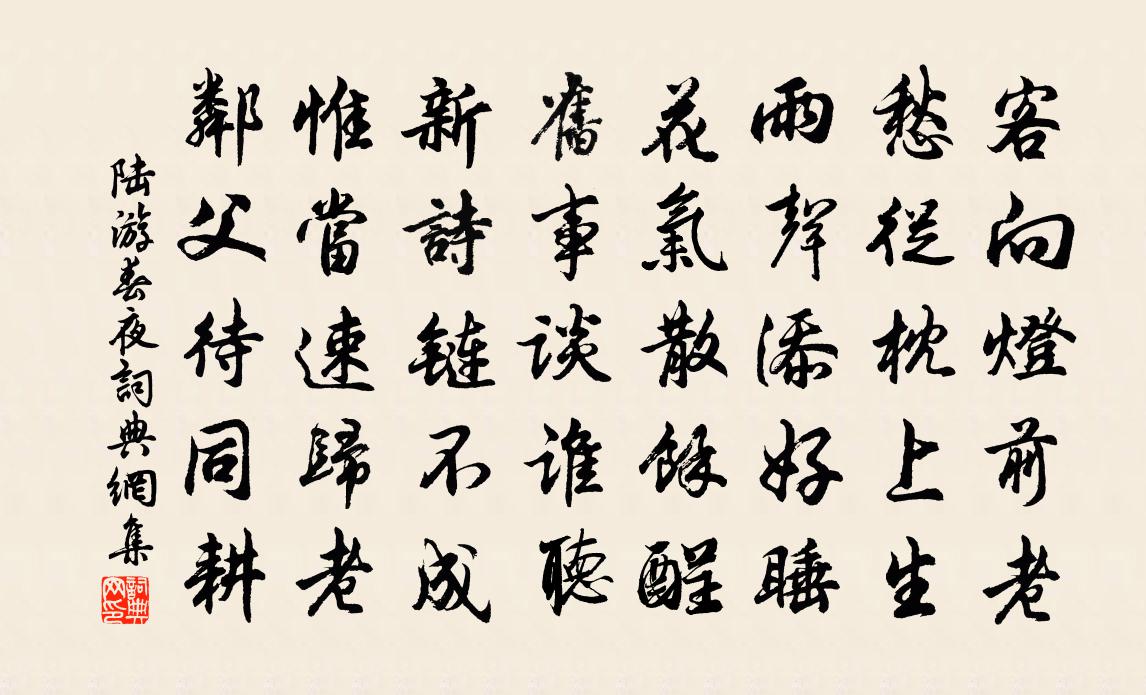 客向燈前老
愁從枕上生
雨聲添好睡
花氣散餘酲
舊事談誰聽
新詩鏈不成
惟當速歸老
鄰父待同耕
陸游春夜詞典網集
詞典网印